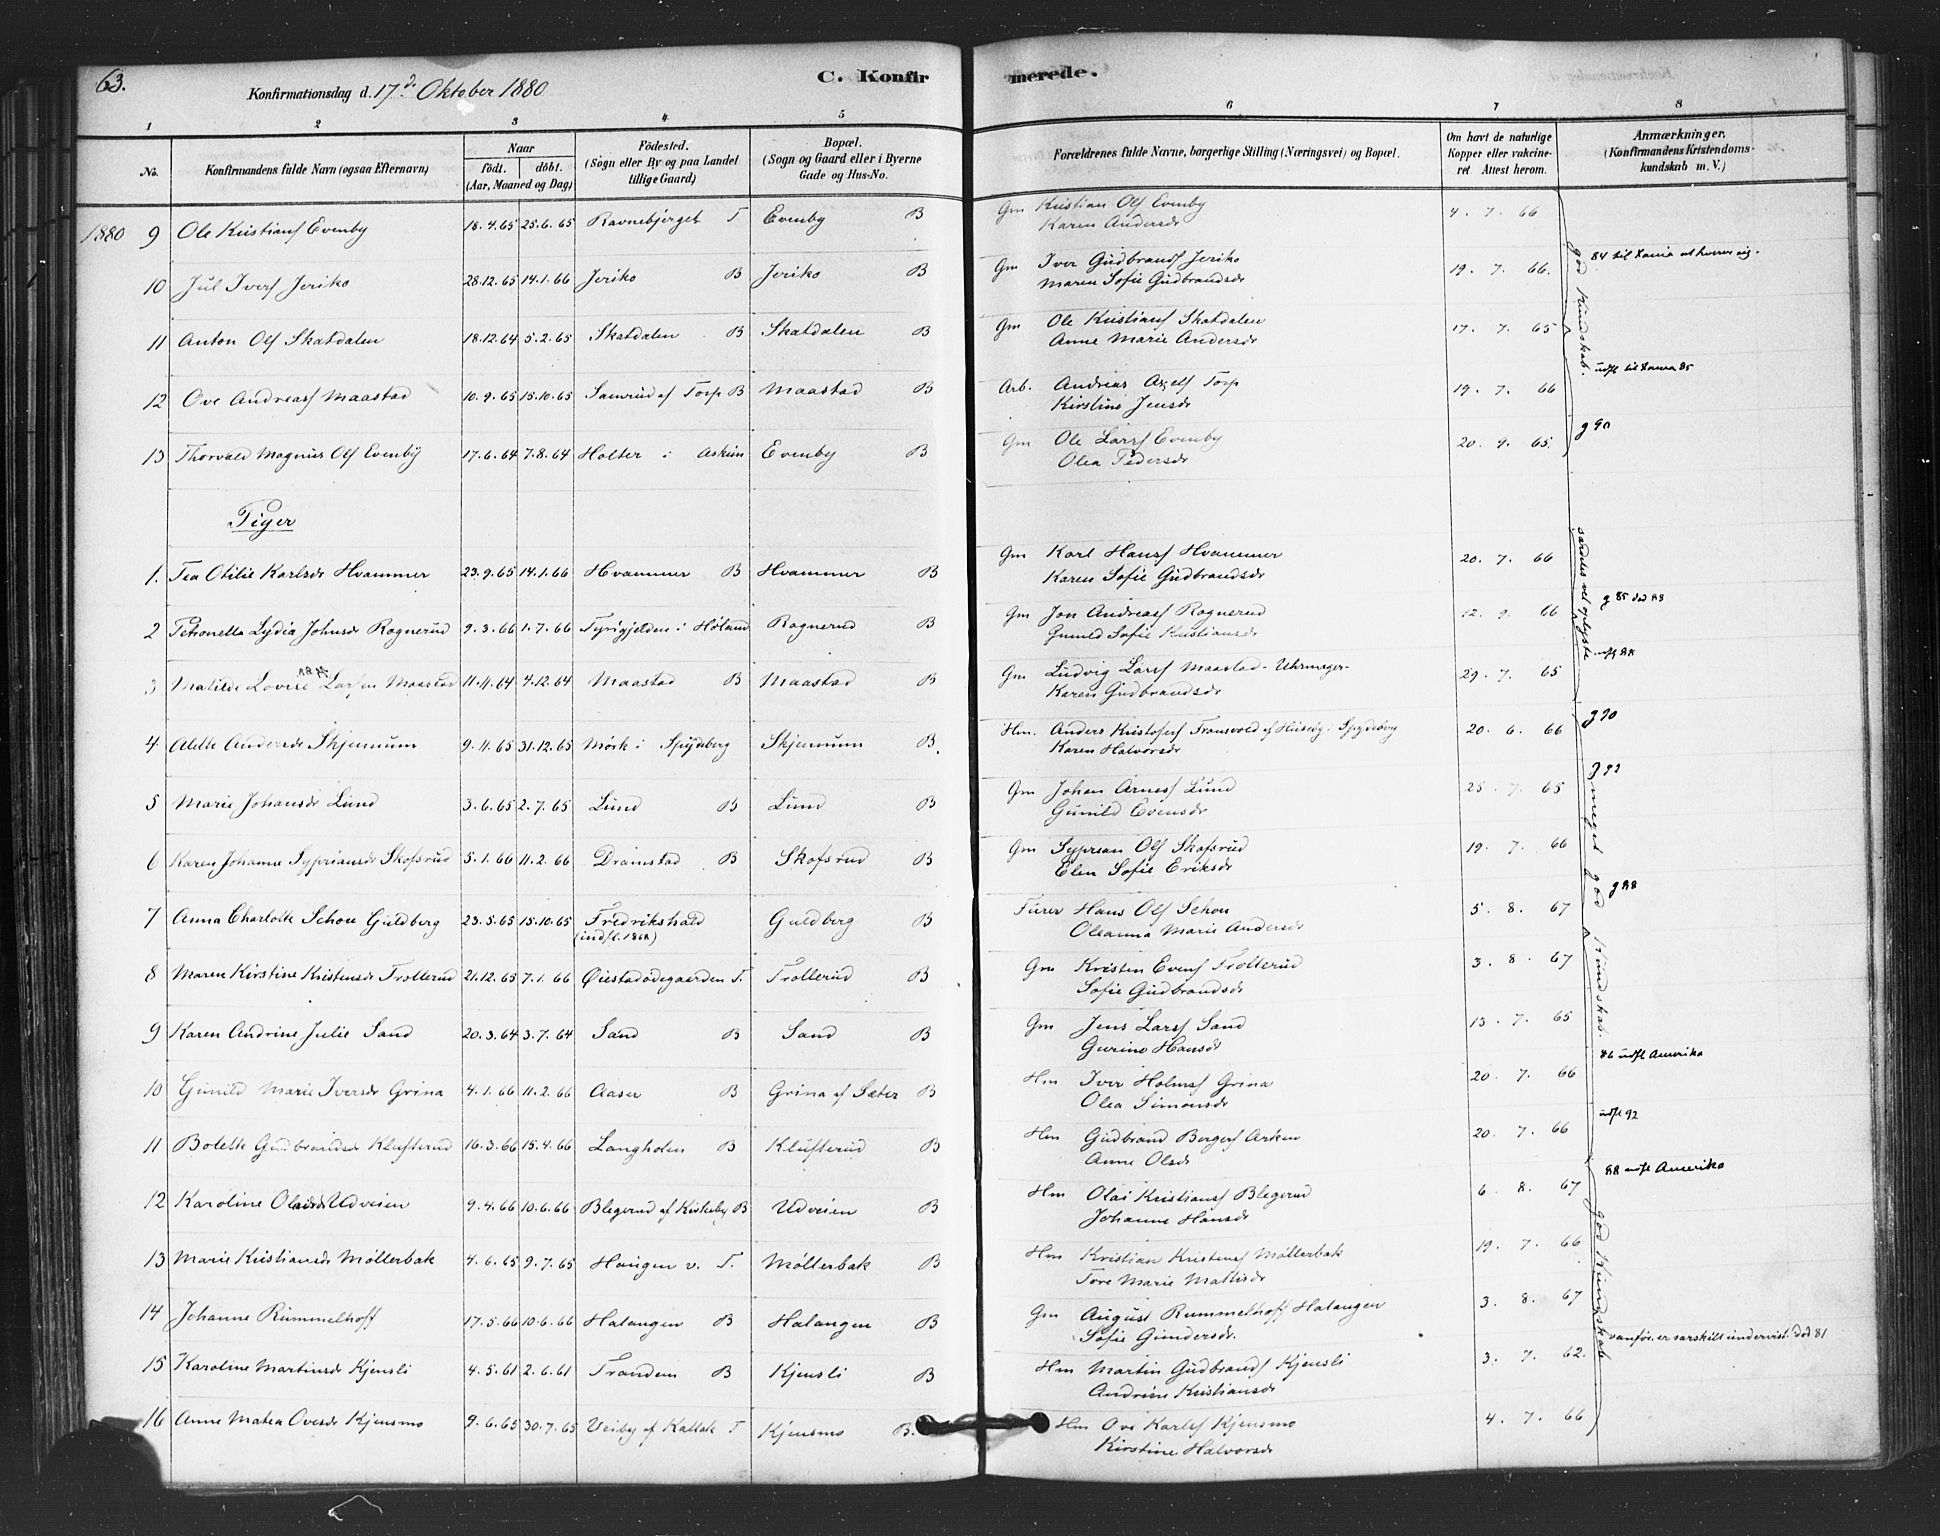 63.
Konfirmationsdag d. 17d. Oktober 1880
C. Konfirmerede.
1 2 3 4 5 6 7 8
No.
Konfirmandens fulde Navn (ogsaa Efternavn)
Naar
født. døbt.
(Aar, Maaned og Dag)
Fødested.
(Sogn eller By og paa Landet
tillige Gaard)
Bopæl.
(Sogn og Gaard eller i Byerne
Gade og Hus-No.
Forældrenes fulde Navne, borgerlige Stilling (Næringsvei) og Bopæl.
Om havt de naturlige
Kopper eller vakcine-
ret Attest herom.
Anmærkninger.
(Konfirmandens Kristendoms-
kundskab m. V.)
1880 9 Ole Kristiansf Evenby 18.4.65 25.6.65 Ravnebjerget T Evenby B Gm Kristian Olsf Evenby 4. 7. 66
Karen Andersdr
10 Jul Iversf Jeriko 28.12.65 14.1.66 Jeriko B Jeriko B Gm Iver Gudbrandsf Jeriko 19. 7. 66.
Maren Sofie Gudbrandsdr
11 Anton Olsf Skatdalen 18.12.64 5.2.65 Skatdalen B Skatdalen B Gm Ole Kristiansf Skatdalen 17. 7. 65
Anne Marie Andersdr
god Kundskab.
12 Ove Andreasf Maastad 10.9.65 15.10.65 af Torp B Maastad B Arb. Andreas Torp 19. 7. 66
Kirstine Jensdr
13 Thorvald Magnus Olsf Evenby 17.6.64 7.8.64 Holter i Askim Evenby B Gm Ole Larsf Evenby 20. 9. 65. g 90
Olea Pedersdr
Piger
1. Tea Otilie Karlsdr Hvammer 23.9.65 14.1.66 Hvammer B Hvammer B Gm Karl Hansf Hvammer 20. 7. 66
Karen Sofie Gudbrandsdr
2 Petronella Lydia Johnsdr Rognerud 9.3.66 1.7.66 i Høland Rognerud B Gm Jon Andreasf Rognerud 12. 9. 66 g 85 død 88
Gunild Sofie Kristiansdr
3 Matilde Lovise Larsen Maastad 11.11.64 4.12.64 Maastad B Maastad B Gm Ludvig Larsf Maastad - Uhrmager- 29. 7. 65
Karen Gudbrandsdr
4 Alette Andersdr Skjennum 9.11.65 31.12.65 Mørk i Spydeberg Skjennum B. Hm. Anders Kristofersf Fransvold af Huseby i Spydeberg 20. 6. 66 g 90
Karen Halvorsdr
5 Marie Johansdr Lund 3.6.65 2.7.65 Lund B Lund B Gm Johan Arnesf Lund 25. 7. 65 g 92
Gunild Evensdr
6 Karen Johanne Sypriansdr Skofsrud 5.1.66 11.2.66 Dramstad B Skofsrud B Gm Syprian Olsf Skofsrud 19. 7. 66
Elen Sofie Eriksdr
meget god Kundskab.
7 Anna Charlotte Schou Guldberg 23.5.65 15.10.65 Fredrikshald Guldberg B Furer Hans Olsf Schou 5. 8. 67 g 88
(indfl. 1868) Oleanna Marie Andersdr
8 Maren Kirstine Kristensdr Trollerud 21.12.65 7.1.66 Øiestadødegaarden T. Trollerud B Gm Kristen Evensf Trollerud 3. 8. 67
Sofie Gudbrandsdr
9 Karen Andrine Julie Sand 20.3.64 3.7.64 Sand B Sand B Gm Jens Larsf Sand 13. 7. 65
Gurine Hansdr
10 Gunild Marie Iversdr Grina 4.1.66 11.2.66 Aaser B Grina af Sæter B Hm Iver Holmsf Grina 20. 7. 66 86 udfl Amerika
Olea Simonsdr
11 Bolette Gudbrandsdr Klufterud 16.3.66 15.4.66 Langholen B Klufterud B Hm Gudbrand Bergersf Arken 20. 7. 66 udfl 92
Anne Olsdr
12 Karoline Olaisdr Udveien 9.4.66 10.6.66 Blegerud af Kirkeby B Udveien B Hm Olai Kristiansf Blegerud 6. 8. 67 88 udfl Amerika
Johanne Hansdr
13 Marie Kristiansdr Møllerbak 4.6.65 9.7.65 Haugen v. T. Møllerbak B Hm Kristian Kristensf Møllerbak 19. 7. 66
Tore Marie Mattisdr
god Kundskab
14 Johanne Rummelhoff 17.5.66 10.6.66 Halangen B Halangen B Gm August Rummelhoff Halangen 3. 8. 67
Sofie Gundersdr. vanfør. er særskilt undervist. død 81
15 Karoline Martinsdr Kjensli 4.5.61 2.6.61 Tranden B Kjensli B Hm Martin Gudbrandsf Kjensli 3. 7. 62.
Andrine Kristiansdr
16 Anne Matea Ovesdr Kjensmo 9.6.65 30.7.65 Veiby af Kallak T Kjensmo B. Hm Ove Karlsf Kjensmo 4. 7. 66
Kirstine Halvorsdr